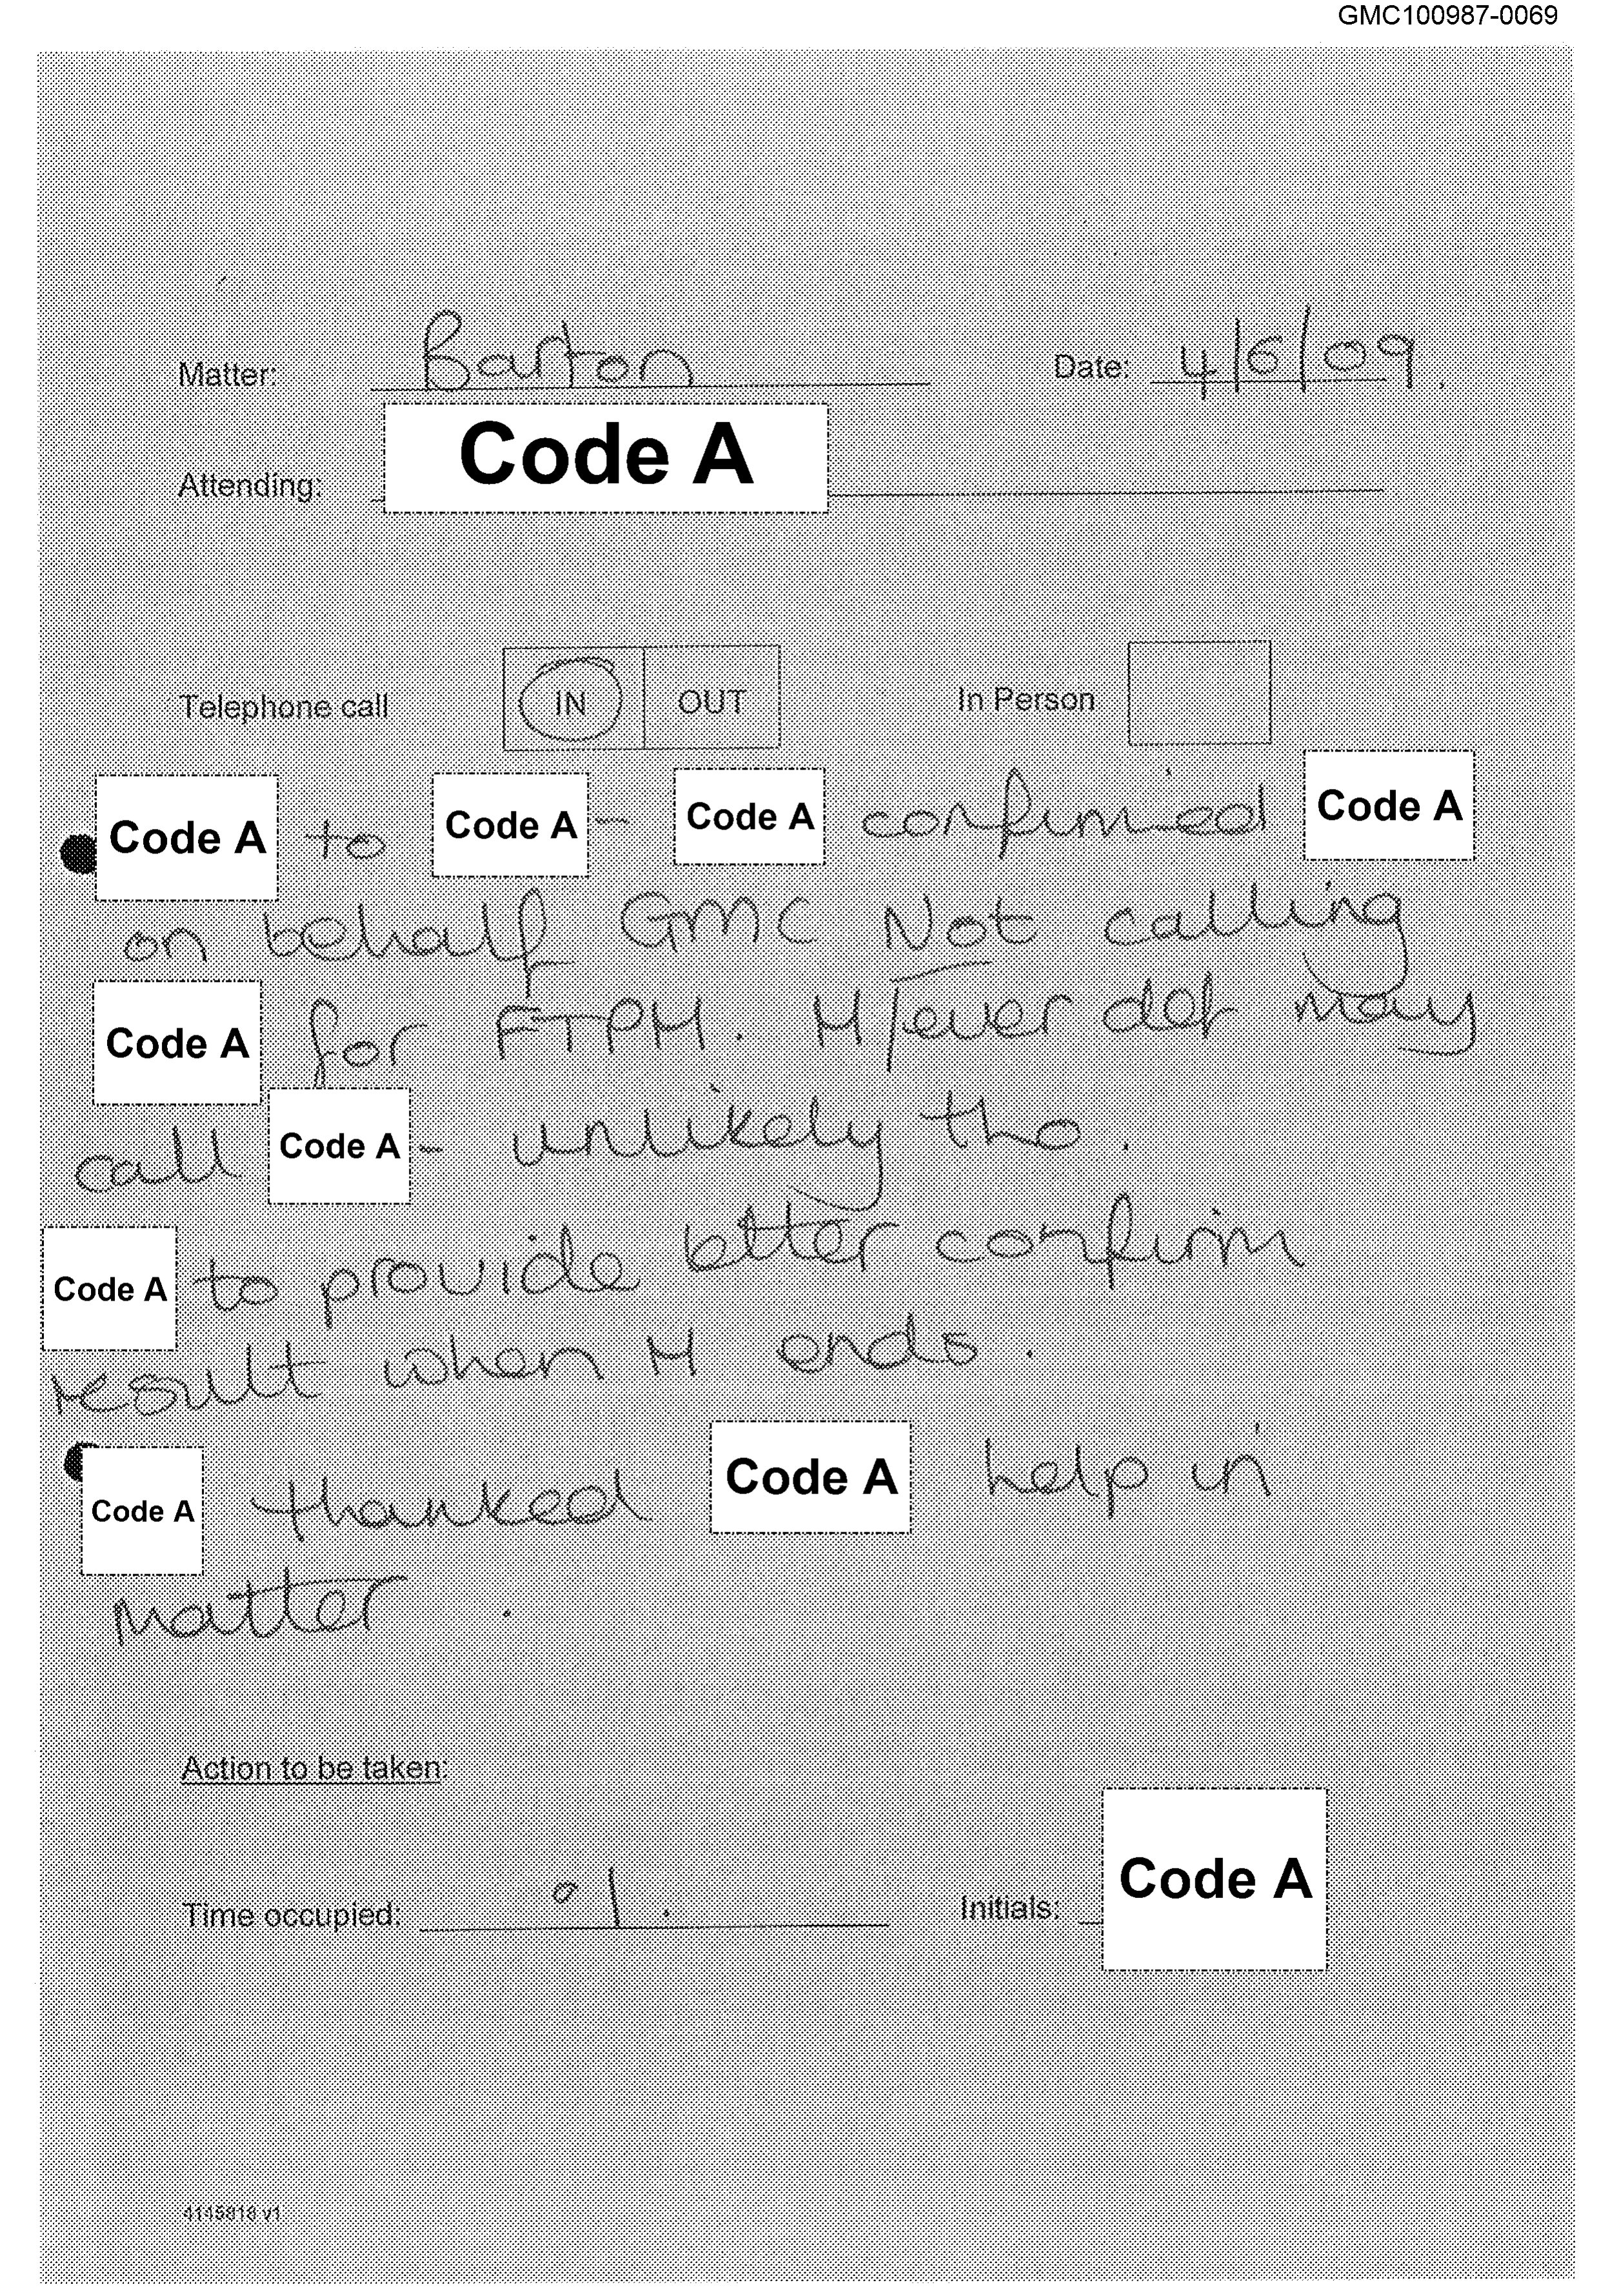 GMC100987-0069
Matter: Barton Date: 4/6/09.
Code A
Attending:
Telephone call IN OUT In Person
Code A to Code A - Code A confirmed Code A
on behalf GMC Not calling
Code A for FTPH. H/ever def may
call Code A - unlikely tho.
Code A to provide letter confirm
result when H ends.
Code A thanked Code A help in
matter.
Action to be taken:
Time occupied: 01. Initials: Code A
4145818 v1